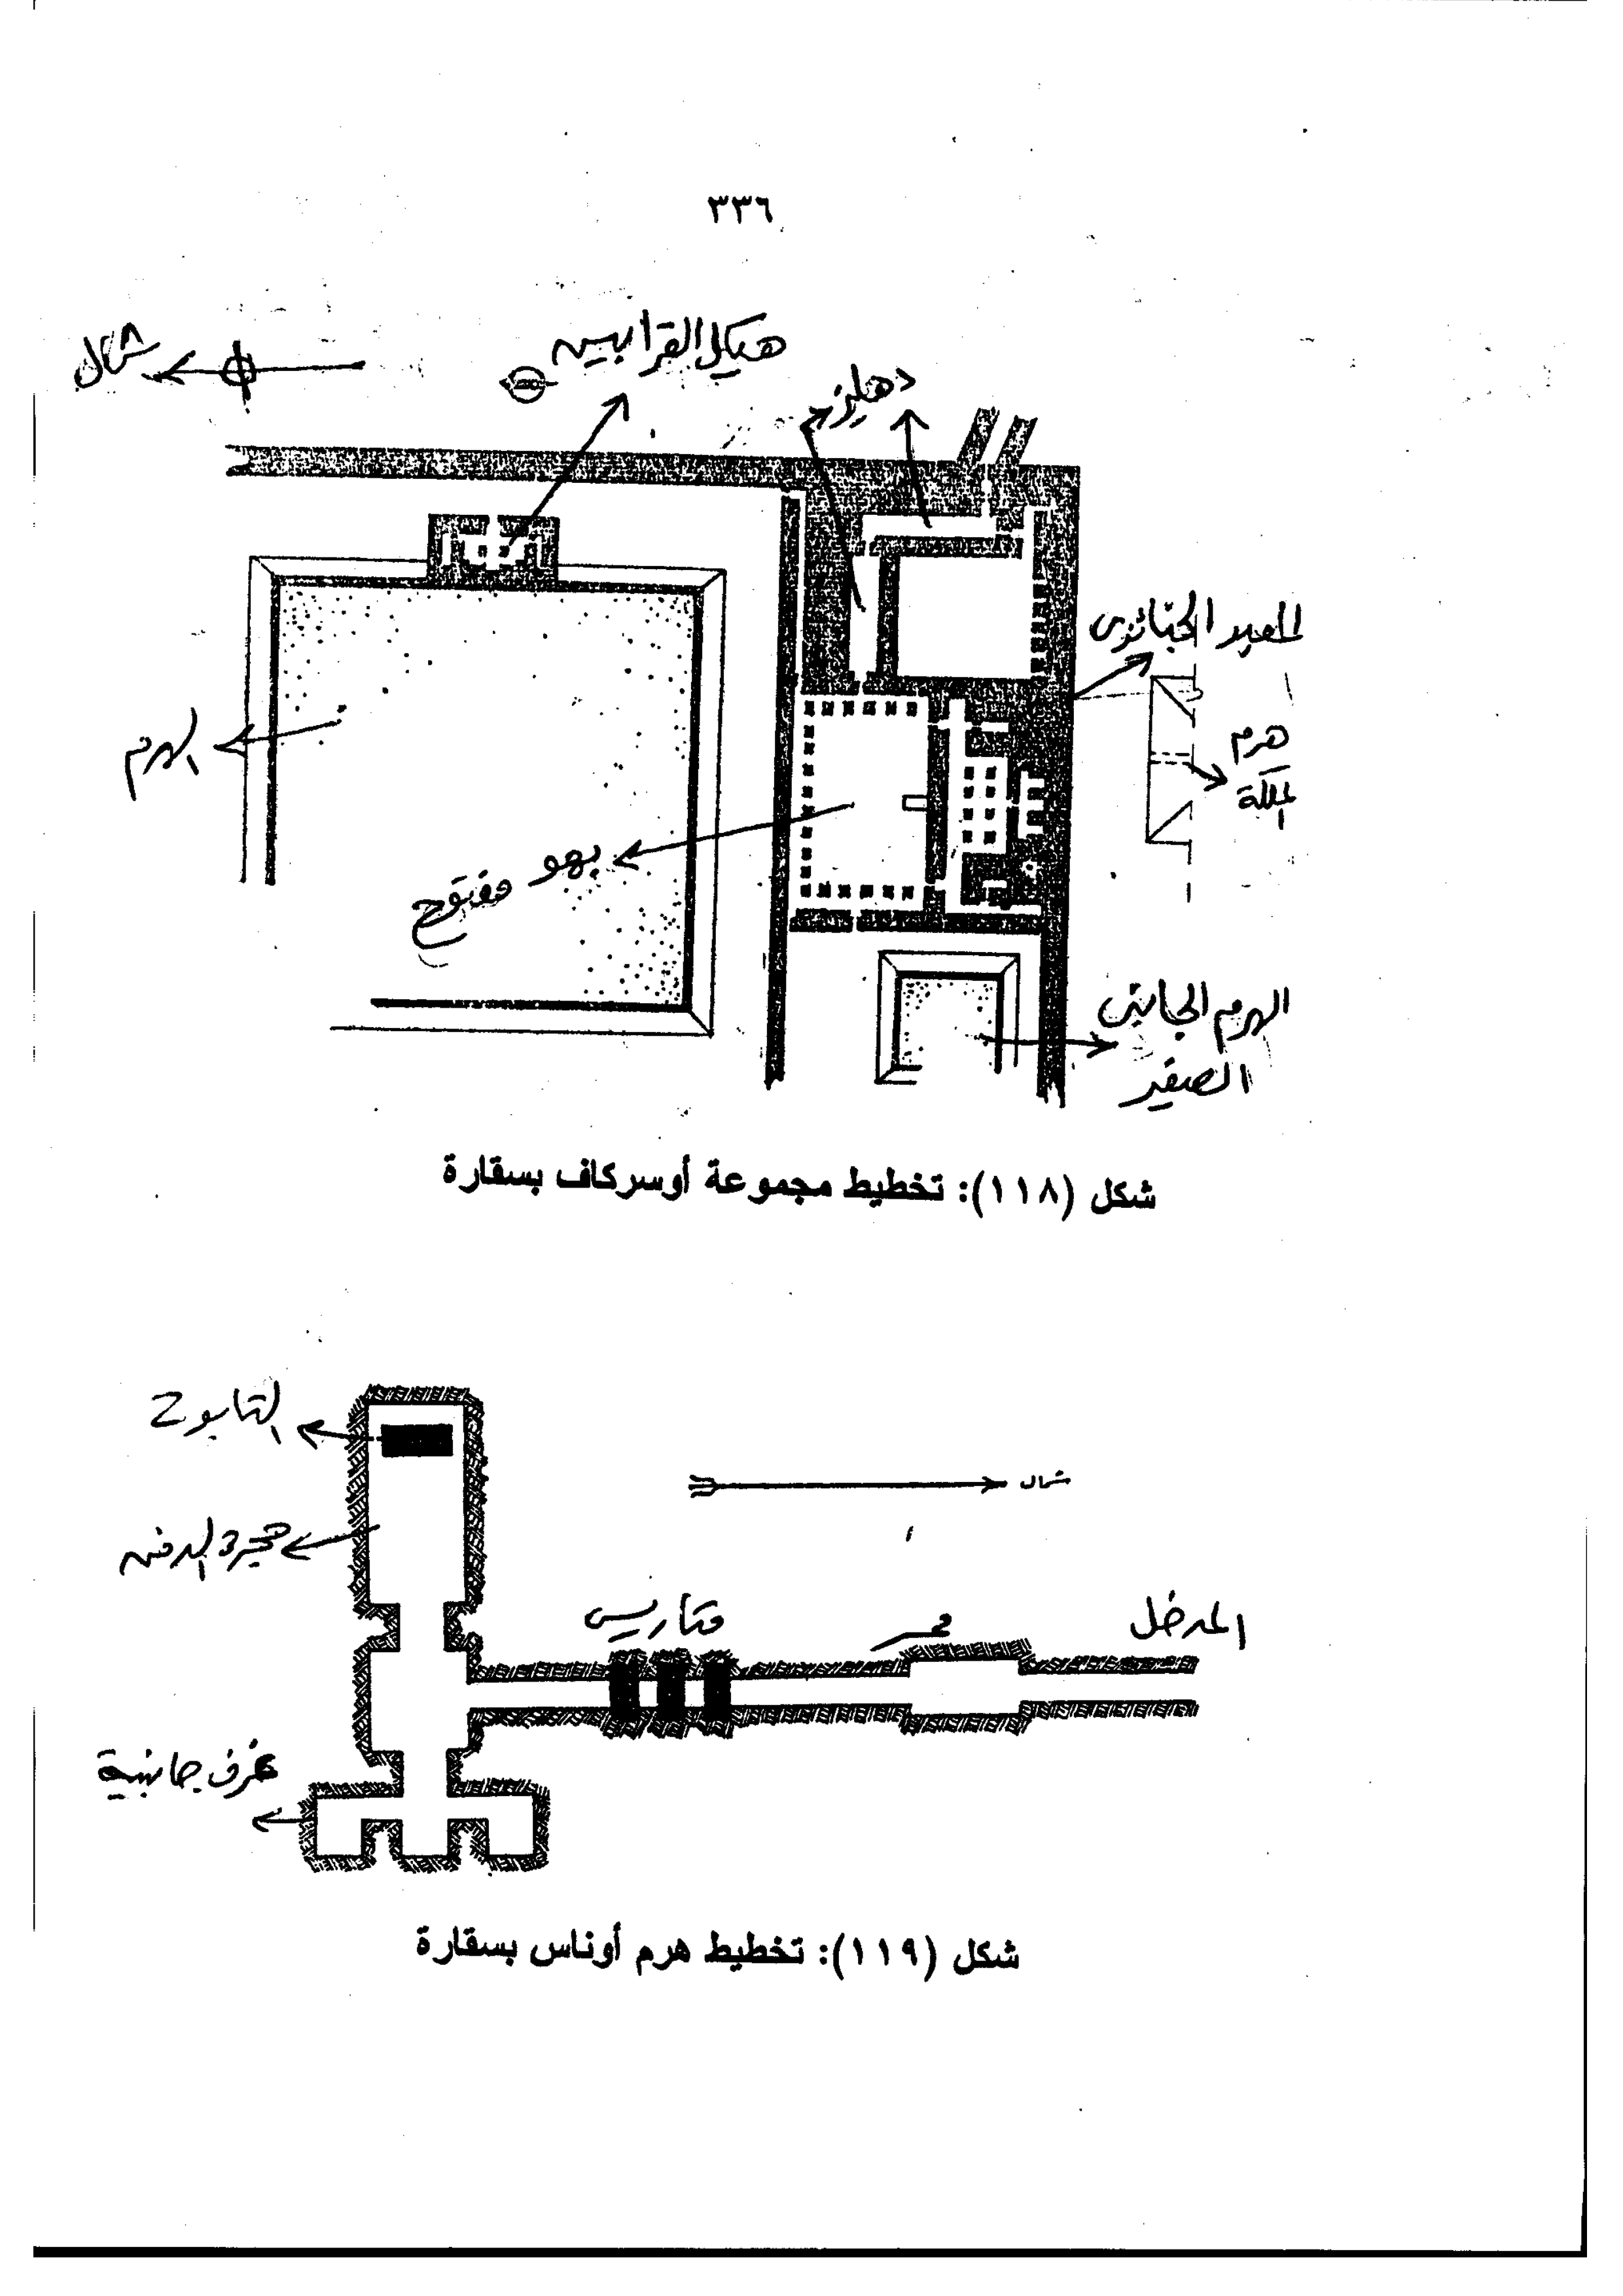 ٣٣٦
شمال
هيكل القرابين
دهليز
المعبد الجنائزى
هرم
الملكة
الهرم
بهو مفتوح
الهرم الجانبى
الصغير
شكل (١١٨): تخطيط مجموعة أوسركاف بسقارة
التابوت
شمال
حجرة الدفن
متاريس
ممر
المدخل
غرف جانبية
شكل (١١٩): تخطيط هرم أوناس بسقارة